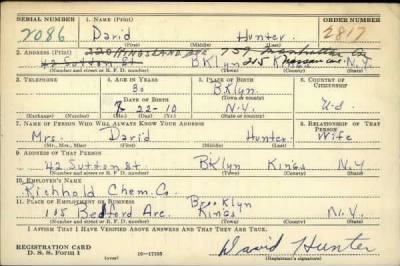 SERIAL NUMBER 1. NAME (Print) ORDER NUMBER
2086 David Hunter 2817
(First) (Middle) (Last)
2. ADDRESS (Print) 220 KINGSLAND AVE 759 Manhattan Av
42 Sutton St BKlyn 215 Nassau Ave. Kings N.Y.
(Number and street or R. F. D. number) (Town) (County) (State)
3. TELEPHONE 4. AGE IN YEARS 5. PLACE OF BIRTH 6. COUNTRY OF CITIZENSHIP
30 BKlyn
DATE OF BIRTH (Town or county)
22-10 N.Y. U.S.
(Exchange) (Number) (Mo.) (Day) (Yr.) (State or country)
7. NAME OF PERSON WHO WILL ALWAYS KNOW YOUR ADDRESS 8. RELATIONSHIP OF THAT PERSON
Mrs. David Hunter Wife
(Mr., Mrs., Miss) (First) (Middle) (Last)
9. ADDRESS OF THAT PERSON
42 Sutton St BKlyn Kings N.Y
(Number and street or R. F. D. number) (Town) (County) (State)
10. EMPLOYER'S NAME
Richhold Chem. Co
11. PLACE OF EMPLOYMENT OR BUSINESS Brooklyn
105 Bedford Ave. Kings N.Y.
(Number and street or R. F. D. number) (Town) (County) (State)
I AFFIRM THAT I HAVE VERIFIED ABOVE ANSWERS AND THAT THEY ARE TRUE.
REGISTRATION CARD
D. S. S. Form 1 16—17105 David Hunter
(Registrant's signature)